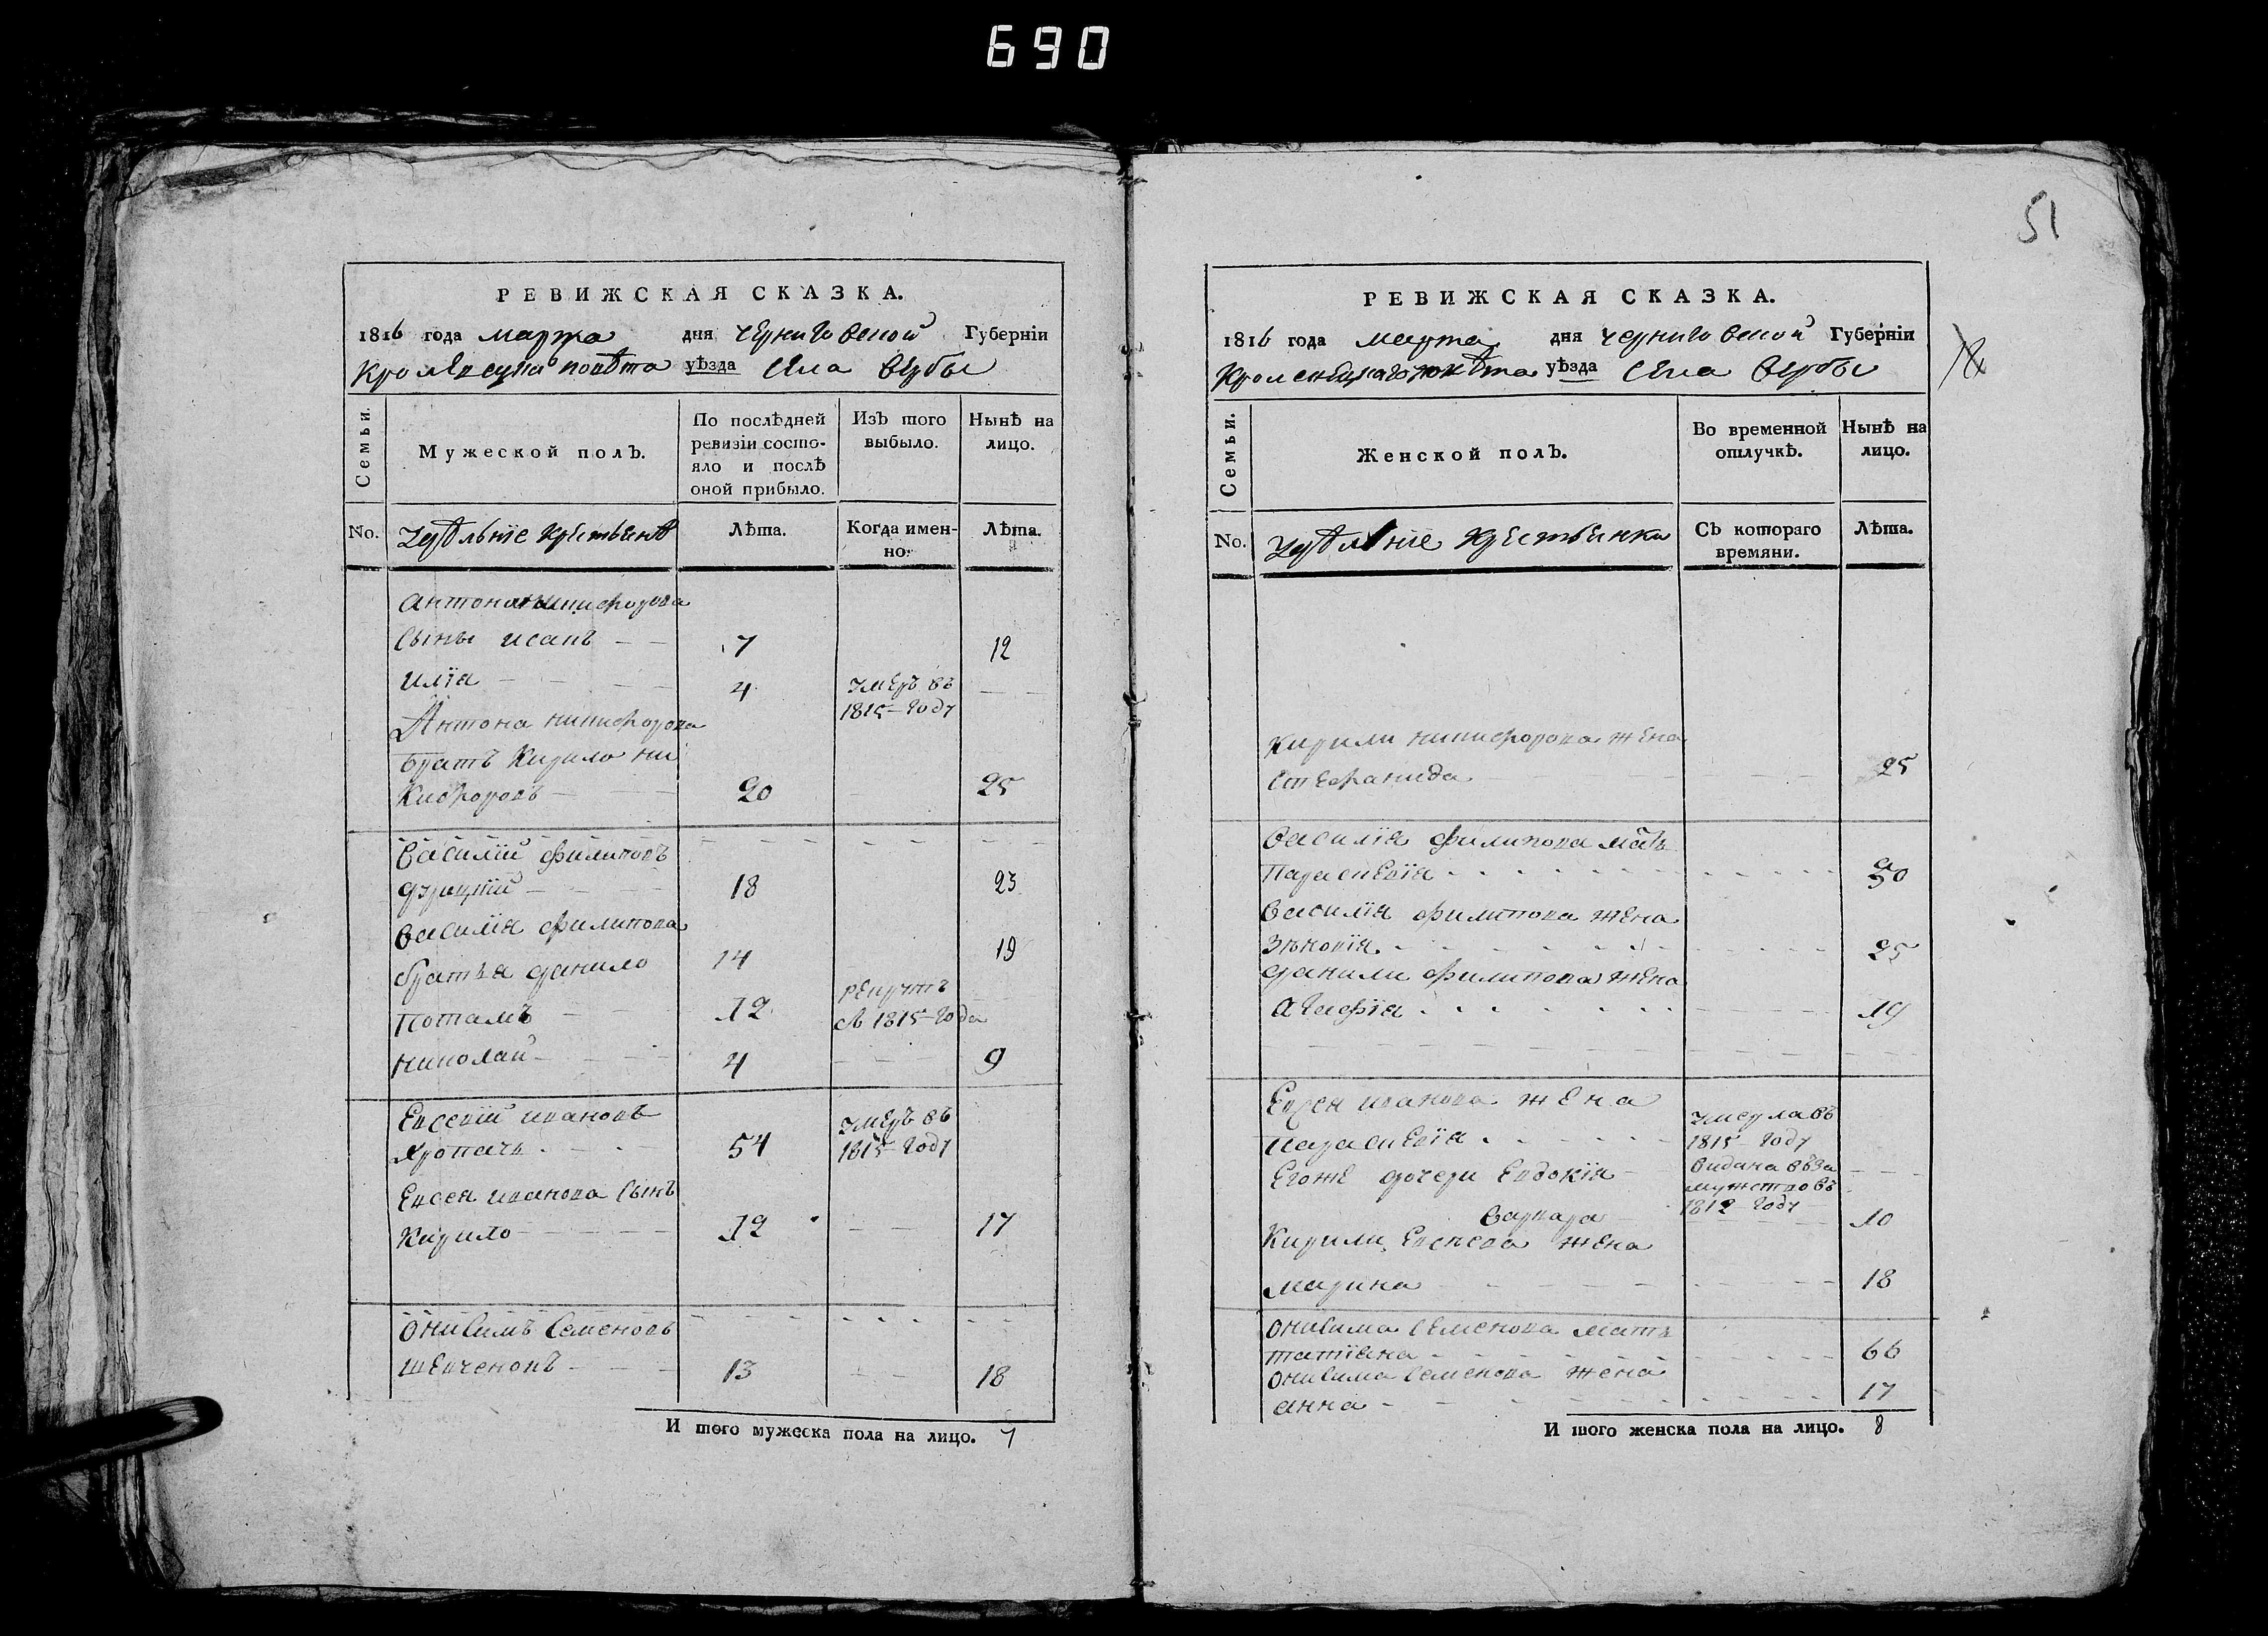 690
51
РЕВИЖСКАЯ СКАЗКА.
1816 года марта дня Черниговской Губерніи
Кролевецкаго повѣта уѣзда Села Вербы
Семьи.
Мужеской полъ.
По послѣдней ревизіи состояло и послѣ оной прибыло.
Изъ того выбыло.
Ныне на лицо.
No.
Лѣта.
Когда именно.
Лѣта.
Антона Никифорова
Сыны Исакъ 7 12
Илія 4 умеръ въ
1815 году
Антона Никифорова
братъ Кирило Ни
кифоровъ 20 25
Василій Филиповъ
18 23
Василія Филипова
братья Данило 14 19
Потапъ 12 рекрутъ
1815 года
Николай 4 9
Евсевій Ивановъ умеръ въ
54 1815 году
Евсея Иванова Сынъ
Кирило 12 17
Онисимъ Семеновъ
Шевченокъ 13 18
И того мужеска пола на лицо. 7
РЕВИЖСКАЯ СКАЗКА.
1816 года марта дня Черниговской Губерніи
Кролевецкаго повѣта уѣзда Села Вербы
Семьи.
Женской полъ.
Во временной отлучкѣ.
Нынѣ на лицо.
No.
Съ котораго времяни.
Лѣта.
Кирили Никифорова жена
Стефанида 25
Василія Филипова мать
Параскевія 50
Василія Филипова жена
Зѣновія 25
Данили Филипова жена
Агафія 19
Евсея Иванова жена умерла въ
Параскевія 1815 году
Егожъ дочери Евдокія видана въ за
мужство въ
1812 году
Варвара 10
Кирили Евсеева жена
Марина 18
Онисима Семенова мать
Татіяна 66
Онисима Семенова жена
Анна 17
И того женска пола на лицо. 8